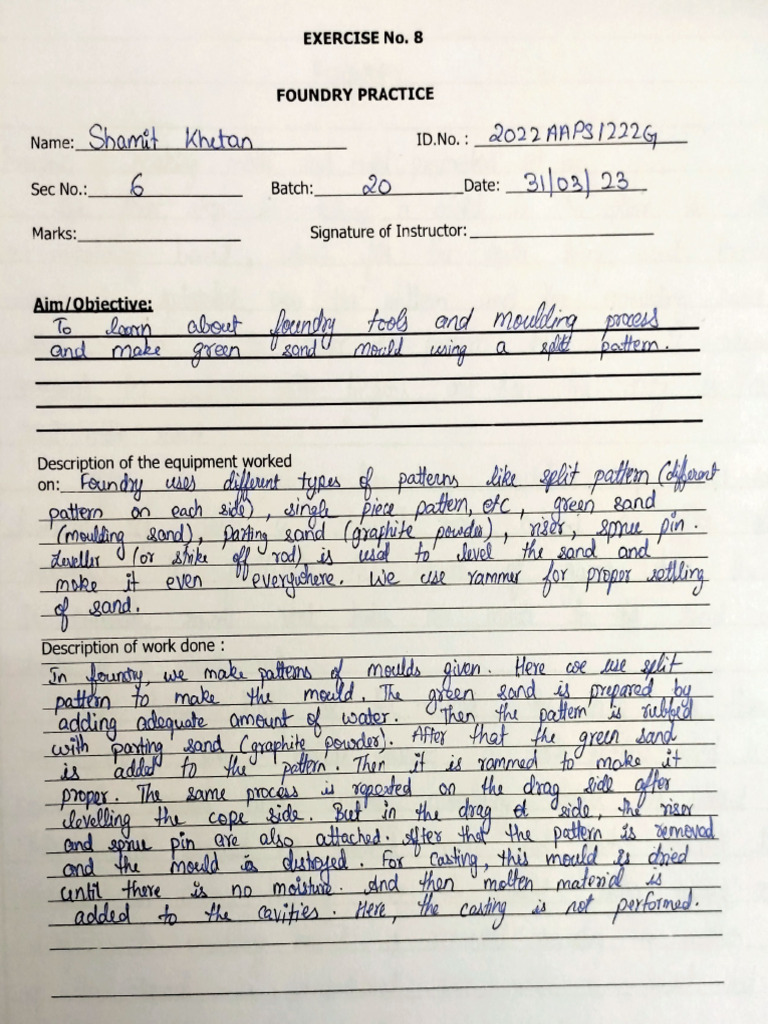 EXERCISE No. 8
FOUNDRY PRACTICE
Name: Shamit Khetan ID.No. : 2022AAPS1222G
Sec No.: 6 Batch: 20 Date: 31/03/23
Marks: Signature of Instructor:
Aim/Objective:
To learn about foundry tools and moulding process
and make green sand mould using a split pattern.
Description of the equipment worked
on: Foundry uses different types of patterns like split pattern (different
pattern on each side), single piece pattern, etc, green sand
(moulding sand), parting sand (graphite powder), riser, sprue pin.
Leveller (or strike off rod) is used to level the sand and
make it even everywhere. We use rammer for proper settling
of sand.
Description of work done :
In foundry, we make patterns of moulds given. Here we use split
pattern to make the mould. The green sand is prepared by
adding adequate amount of water. Then the pattern is rubbed
with parting sand (graphite powder). After that the green sand
is added to the pattern. Then it is rammed to make it
proper. The same process is repeated on the drag side after
levelling the cope side. But in the drag side, the riser
and sprue pin are also attached. After that the pattern is removed
and the mould is destroyed. For casting, this mould is dried
until there is no moisture. And then molten material is
added to the cavities. Here, the casting is not performed.